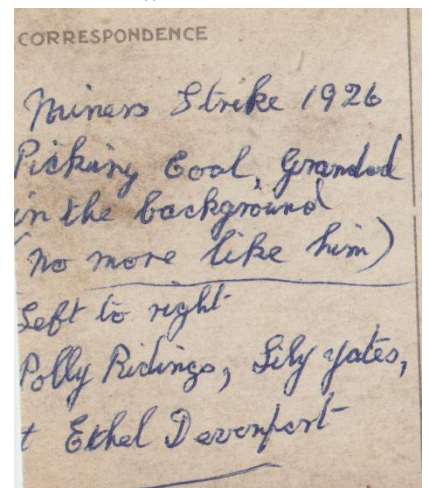 CORRESPONDENCE
Miners Strike 1926
Picking Coal, Grandad
in the background
(no more like him)
Left to right
Polly Ridings, Lily Yates,
+ Ethel Davenport